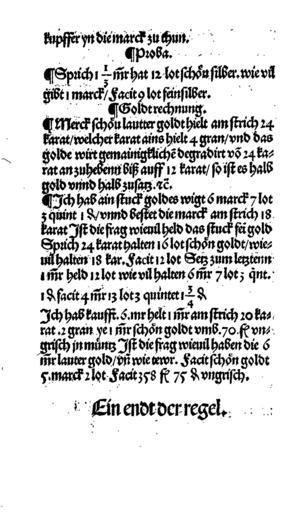 kupffer yn die marck zu thun.
¶ Proba.
¶ Sprich 1 1/3 mr hat 12 lot schön silber. wie vil
gibt 1 marck / Facit 9 lot feinsilber.
¶ Goldt rechnung.
¶ Merck schön lautter goldt hielt am strich 24
karat / welcher karat ains hielt 4 gran / vnd das
golde wirt gemainigklichē degradirt vō 24 ka-
rat an zuhebenn biß auff 12 karat / so ist es halb
gold vnnd halb zusatz. ꝛc̄.
¶ Jch hab ain stuck goldes wigt 6 marck 7 lot
3 quint 1 ₰ / vnnd bestet die marck am strich 18
karat Jst die frag wieuil held das stuck fei gold
Sprich 24 karat halten 16 lot schön goldt / wie-
uil halten 18 kar. Facit 12 lot Setz zum letztenn
1 mr held 12 lot wie vil halten 6 mr 7 lot 3 qnt.
1 ₰ facit 4 mr 13 lot 3 quintet 1 3/4 ₰
Jch hab kaufft. 6. mr helt 1 mr am strich 20 ka-
rat .2 gran ye 1 mr schön goldt vmb. 70. fl vn-
grisch in müntz Jst die frag wieuil haben die 6
mr lauter gold / vn̄ wie tewr. Facit schön goldt
5. marck 2 lot Facit 358 fl 75 ₰ vngrisch.
Ein endt der regel.